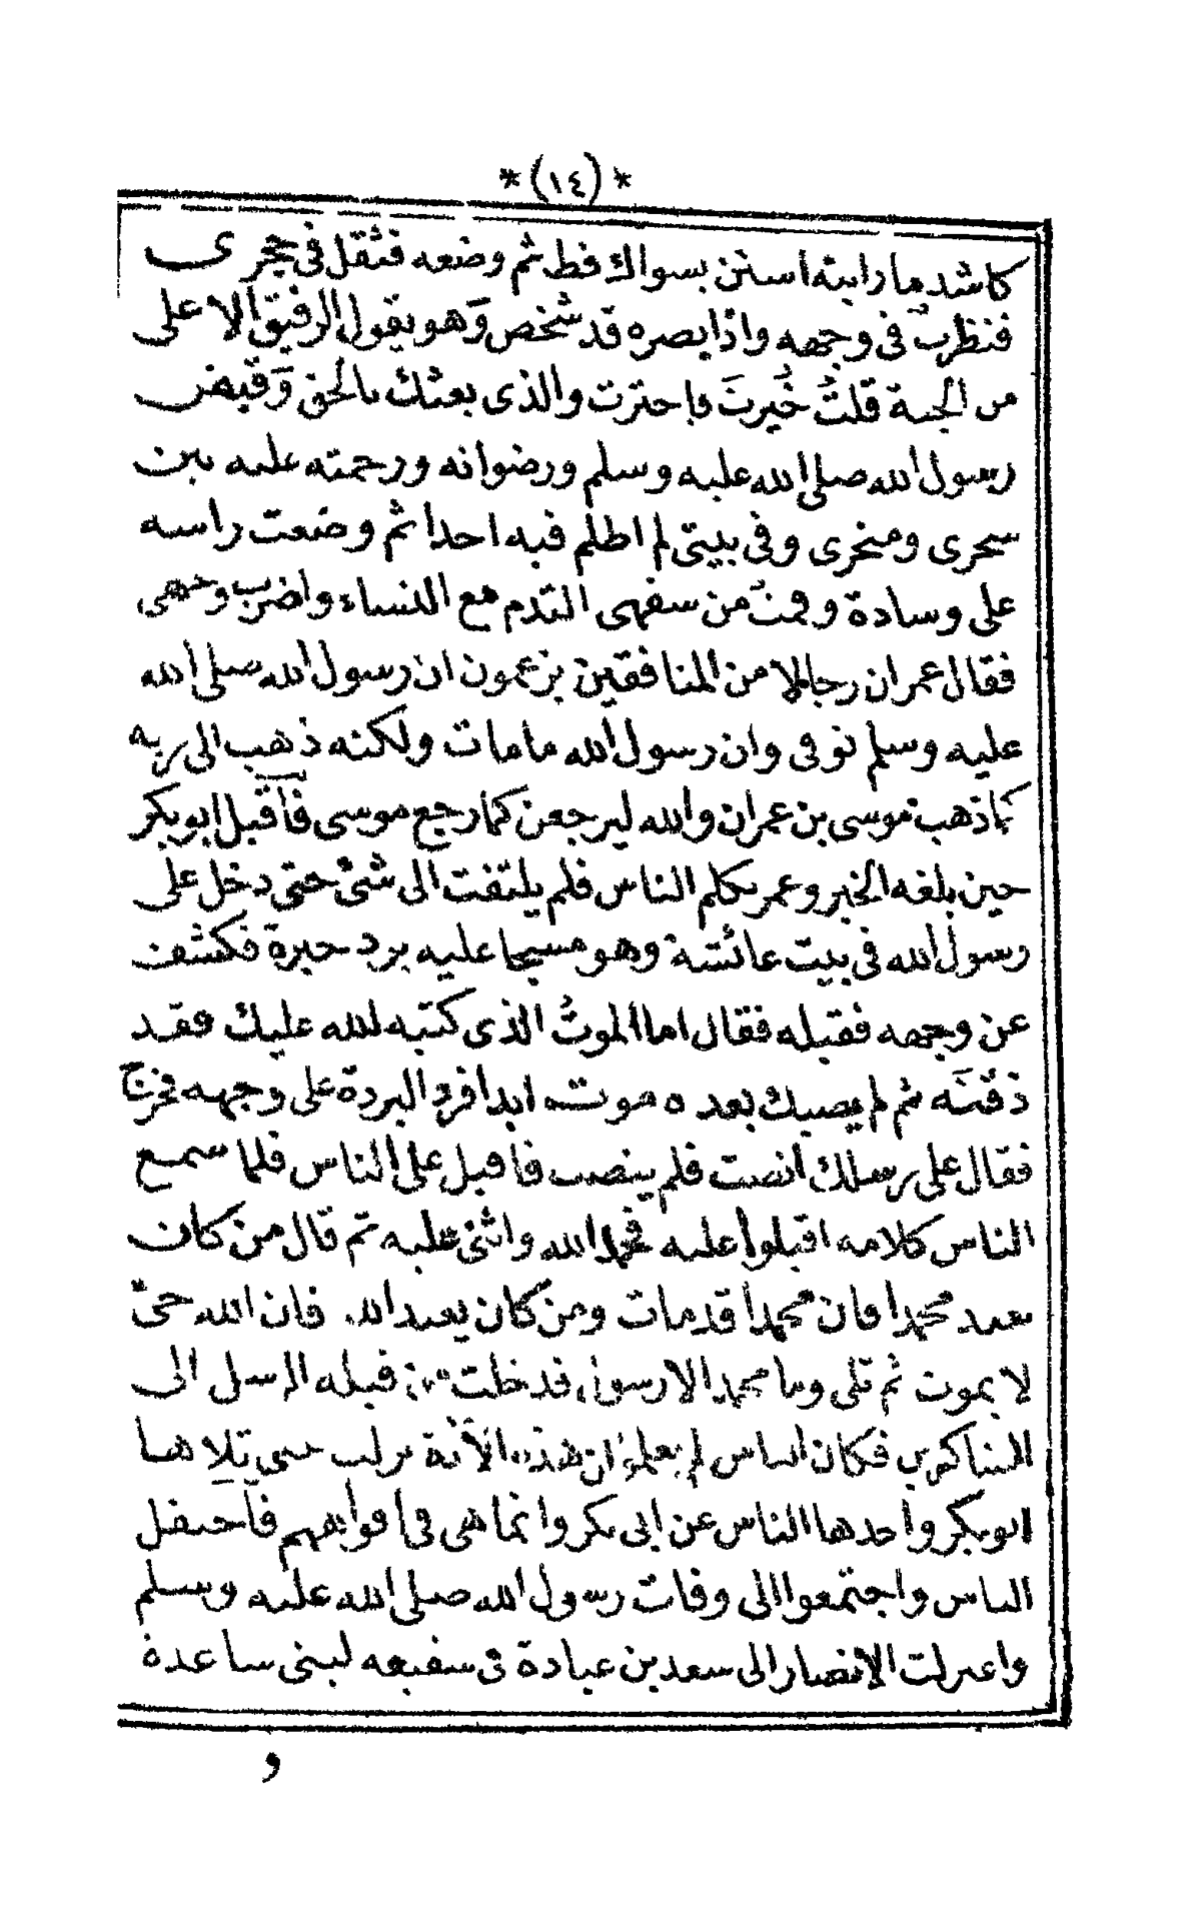 *(١٤)*
كاشد ما رايته استن بسواك قط ثم وضعه فثقل فى حجرى
فنظرت فى وجهه واذا بصره قد شخص وهو يقول الرفيق الاعلى
من الجنة قلتُ خُيرتَ فاخترت والذى بعثك بالحق وقبض
رسول الله صلى الله عليه وسلم ورضوانه ورحمته عليه بين
سحرى ومنحرى وفى بيتى لم اظلم فيه احدا ثم وضعت راسه
على وسادة وقمت من سفهى التدم مع النساء واضرب وجهى
فقال عمر ان رجالا من المنافقين يزعمون ان رسول الله صلى الله
عليه وسلم توفى وان رسول الله مامات ولكنه ذهب الى ربه
كما ذهب موسى بن عمران والله ليرجعن كما رجع موسى فآقبل ابوبكر
حين بلغه الخبر وعمر يكلم الناس فلم يلتفت الى شئ حتى دخل على
رسول الله فى بيت عائشة وهو مسجا عليه برد حبرة فكشف
عن وجهه فقبله فقال اما الموتُ الذى كتبه لله عليك فقد
ذقتَه ثم لم يصبك بعده موت ابدا فرد البردة على وجهه فخرج
فقال على رسلك انصت فلم ينصب فاقبل على الناس فلما سمع
الناس كلامه اقبلوا عليه فحمد الله واثنى عليه ثم قال من كان
يعبد محمدا فان محمدا قد مات ومن كان يعبد الله فان الله حىّ
لا يموت ثم تلى وما محمد الا رسول قد خلت من قبله الرسل الى
الشاكرين فكان الناس لم يعلموا ان هذه الآية نزلت حتى تلاها
ابوبكر واخدها الناس عن ابى بكر وانما هى فى افواههم فآحتفل
الناس واجتمعوا الى وفات رسول الله صلى الله عليه وسلم
واعتزلت الانصار الى سعد بن عبادة فى سقيفه لبنى ساعدة
و